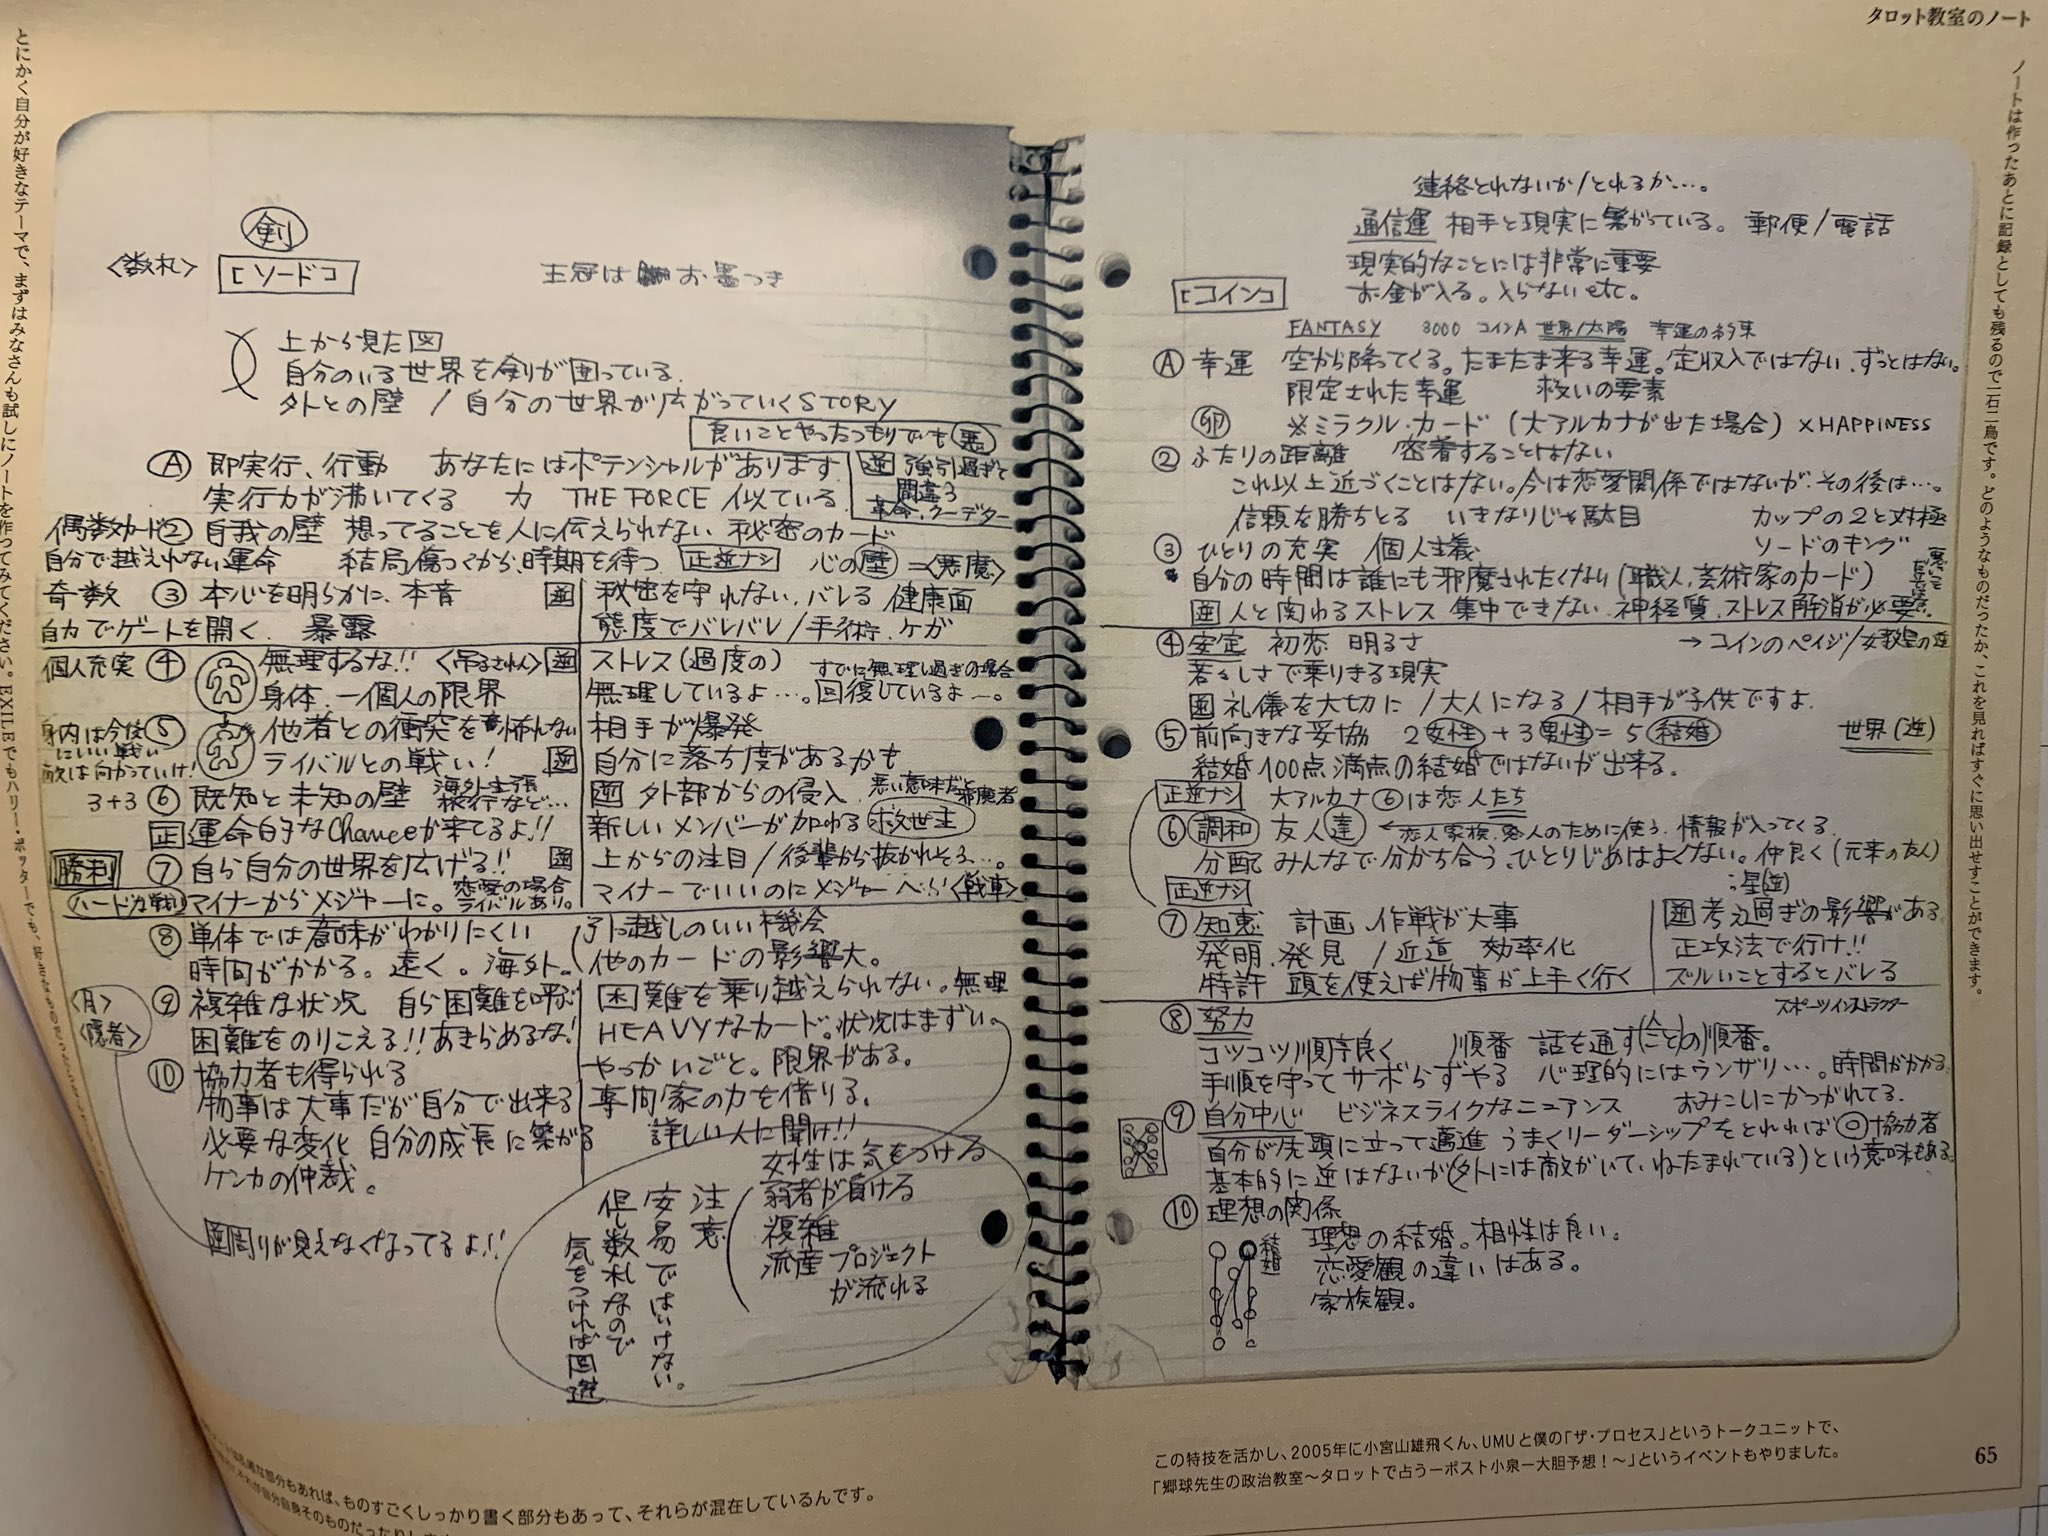 タロット教室のノート
ノートは作ったあとに記録としても残るので一石二鳥です。どのようなものだったか、これを見ればすぐに思い出せすことができます。
とにかく自分が好きなテーマで、まずはみなさんも試しにノートを作ってみてください。EXILEでもハリー・ポッターでも、好きなものだったら
剣
<数札>
[ソード]
王冠は お墨つき
上から見た図
自分のいる世界を剣が囲っている。
外との壁 / 自分の世界が広がっていくSTORY
良いことやったつもりでも悪
Ⓐ 即実行、行動 あなたにはポテンシャルがあります
実行力が沸いてくる 力 THE FORCE 似ている
逆 強引過ぎて
間違う
革命、クーデター
偶数カード② 自我の壁 想ってることを人に伝えられない 秘密のカード
自分で越えれない運命 結局傷つくから、時期を待つ 正逆ナシ 心の壁=<悪魔>
奇数 ③ 本心を明らかに、本音
自力でゲートを開く、暴露
逆 秘密を守れない、バレる 健康面
態度でバレバレ/手術、ケガ
個人充実 ④ 無理するな!! <吊るされん>
身体、一個人の限界
逆 ストレス(過度の) すでに無理し過ぎの場合
無理しているよ…。回復しているよー。
身内は今後
にいい戦い
敵は向かっていけ!
⑤ 他者との衝突を怖れない
ライバルとの戦い!
逆 相手が爆発
自分に落ち度があるかも
3+3 ⑥ 既知と未知の壁 海外出張
旅行など…
正 運命的なChanceが来てるよ!!
逆 外部からの侵入 悪い意味だと邪魔者
新しいメンバーが加わる 救世主
勝利 ⑦ 自ら自分の世界を広げる!!
ハードな戦い マイナーからメジャーに。 恋愛の場合
ライバルあり。
逆 上からの注目/後輩から抜かれそう…。
マイナーでいいのにメジャーへら! <戦車>
⑧ 単体では意味がわかりにくい
時間がかかる。遠く。海外。
引っ越しのいい機会
他のカードの影響大。
<月>
<隠者>
⑨ 複雑な状況 自ら困難を呼ぶ
困難をのりこえる!!あきらめるな!
困難を乗り越えられない。無理
HEAVYなカード。状況はまずい。
やっかいごと。限界がある。
⑩ 協力者も得られる
物事は大事だが自分で出来る
必要な変化 自分の成長に繋がる
ケンカの仲裁。
専門家の力を借りる。
詳しい人に聞け!!
逆 周りが見えなくなってるよ!!
女性は気をつける
弱者が負ける
複雑
流産 プロジェクト
が流れる
注意
安易ではいけない。
但し数札なので
気をつければ回避
連絡とれないか/とれるか…。
通信運 相手と現実に繋がっている。郵便/電話
現実的なことには非常に重要
お金が入る。入らないetc.
[コイン]
FANTASY 3000 コインA 世界/太陽 幸運の約束
Ⓐ 幸運 空から降ってくる。たまたま来る幸運。定収入ではない、ずっとはない。
限定された幸運 救いの要素
卵 ※ミラクル・カード (大アルカナが出た場合) ×HAPPINESS
② ふたりの距離 密着することはない
これ以上近づくことはない。今は恋愛関係ではないが、その後は…。
信頼を勝ちとる いきなりじゃ駄目 カップの2と対極
③ ひとりの充実 個人主義 ソードのキング
自分の時間は誰にも邪魔されたくない(職人、芸術家のカード)
逆 人と関わるストレス 集中できない 神経質、ストレス解消が必要。
④ 安定 初恋 明るさ →コインのペイジ/女教皇の逆
若々しさで乗りきる現実
逆 礼儀を大切に /大人になる/相手が子供ですよ。
⑤ 前向きな妥協 2女性+3男性=5結婚 世界(逆)
結婚 100点満点の結婚ではないが出来る。
正逆ナシ 大アルカナ⑥は恋人たち
⑥ 調和 友人達 ←恋人家族、愛人のために使う、情報が入ってくる
分配 みんなで分かち合う、ひとりじめはよくない。仲良く(元来の友人)
正逆ナシ
:星(逆)
⑦ 知恵 計画、作戦が大事
発明、発見 /近道 効率化
特許 頭を使えば物事が上手く行く
逆 考え過ぎの影響がある
正攻法で行け!!
ズルいことするとバレる
スポーツインストラクター
⑧ 努力
コツコツ順序良く 順番 話を通す(人ごと)の順番。
手順を守ってサボらずやる 心理的にはウンザリ…。時間がかかる
⑨ 自分中心 ビジネスライクなニュアンス おみこしにかつがれてる
自分が先頭に立って邁進 うまくリーダーシップをとれれば◎協力者
基本的に逆はないが(外には敵がいて、ねたまれている)という意味もある。
⑩ 理想の関係
理想の結婚。相性は良い。
恋愛観の違いはある。
家族観。
結婚
部分もあれば、ものすごくしっかり書く部分もあって、それらが混在しているんです。
この特技を活かし、2005年に小宮山雄飛くん、UMUと僕の「ザ・プロセス」というトークユニットで、
「郷球先生の政治教室〜タロットで占うーポスト小泉ー大胆予想!〜」というイベントもやりました。
65